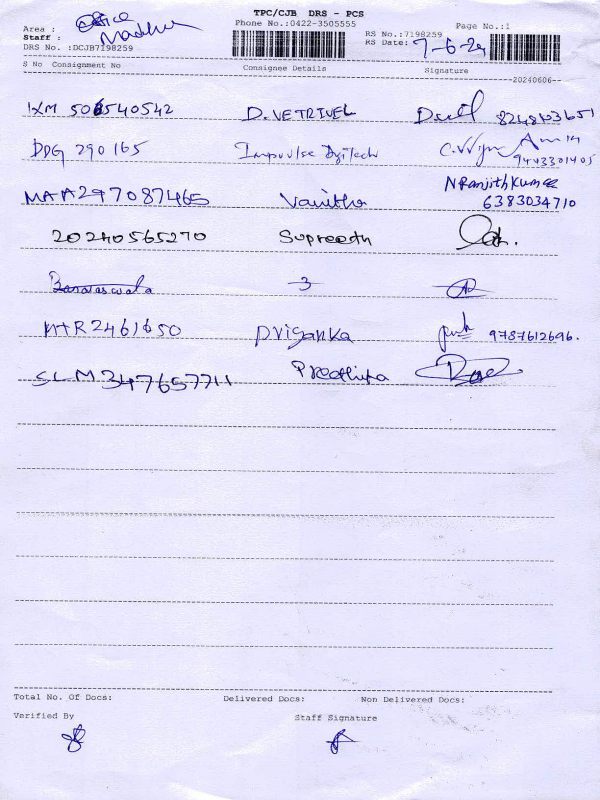 TPC/CJB DRS - PCS
Area : office
Phone No.:0422-3505555
Page No.:1
Staff : Madhu
RS No.:7198259
DRS No. :DCJB7198259
RS Date: 7-6-24
S No Consignment No Consignee Details Signature
20240606
IXM 506540542 D. VETRIVEL
DDG 290165 Impuulse Digitech 9443301405
MAA297087465 Vanitha N Ranjith Kumar
6383034710
20240565270 Supreeth
3
MTR2461650 Priyanka 9787612696.
SLM347657711 Preethipa
Total No. Of Docs: Delivered Docs: Non Delivered Docs:
Verified By Staff Signature